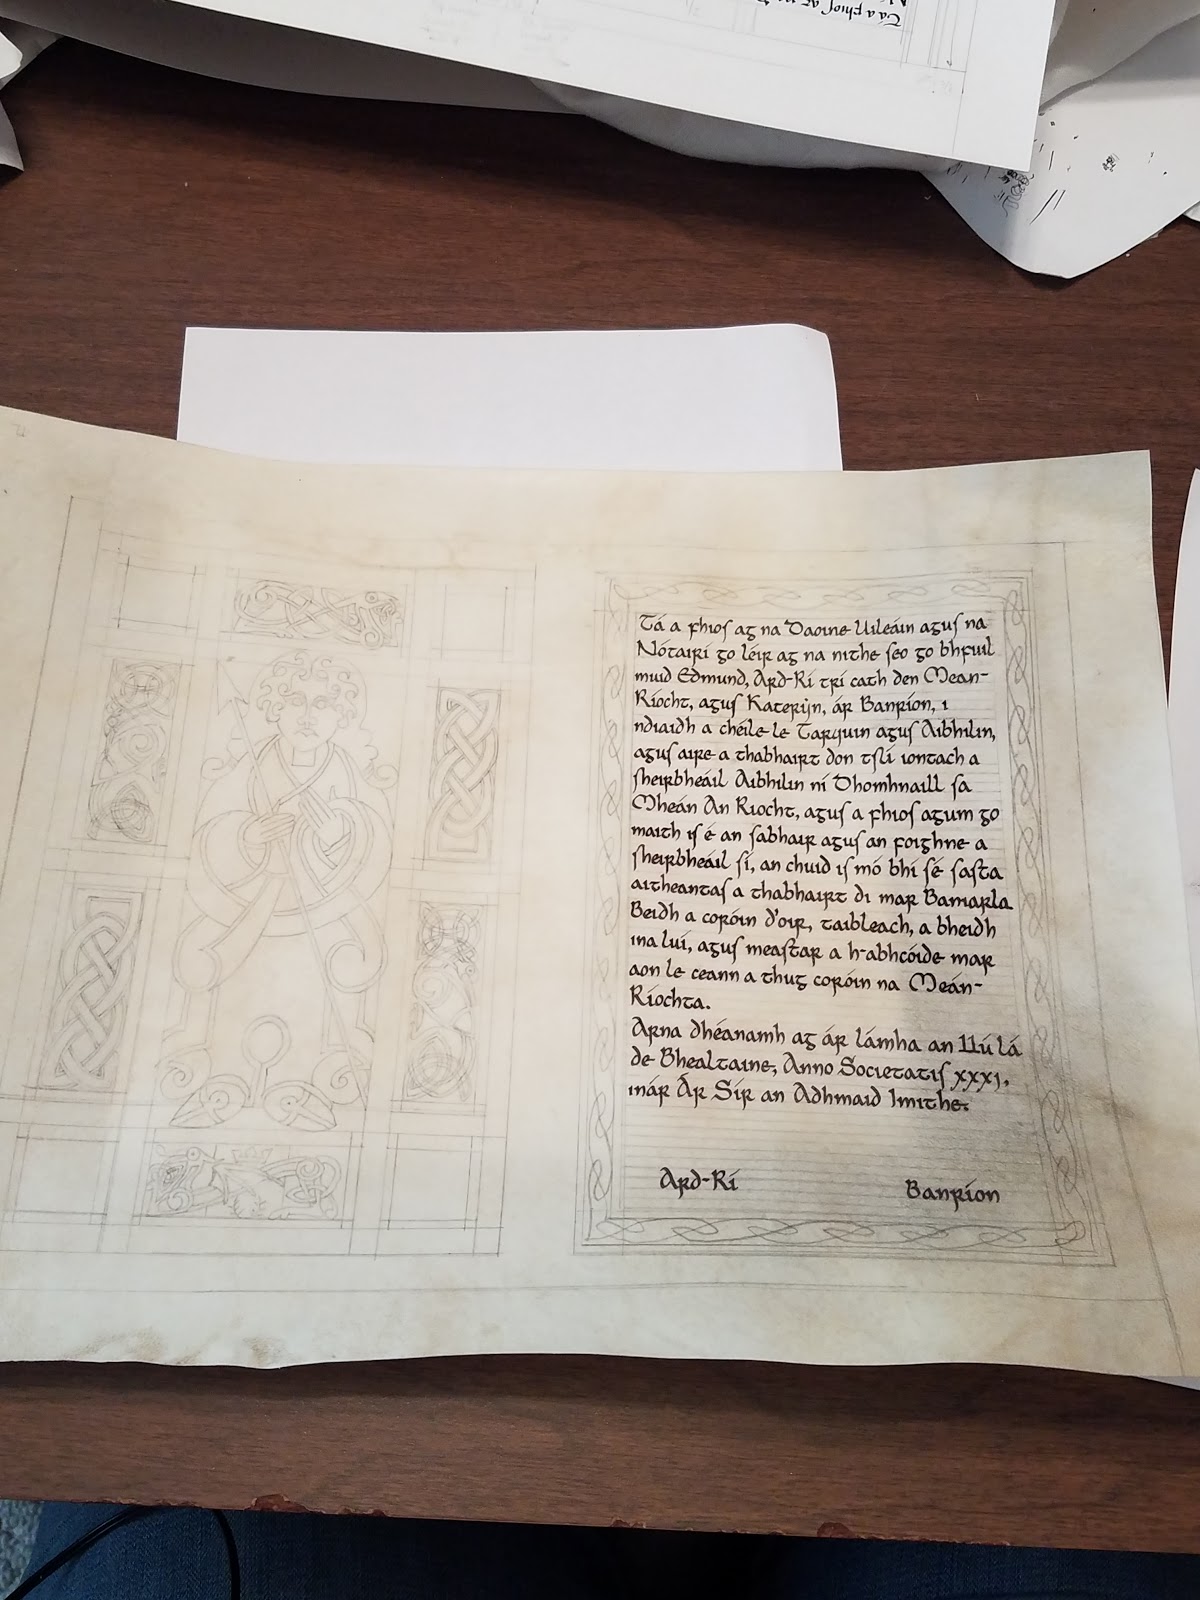 Tá a fhios ag
Tá a fhios ag na Daoine Uileáin agus na
Nótairí go léir ag na nithe seo go bhfuil
muid Edmund, Ard-Rí trí cath den Mean-
Ríocht, agus Katerijn, ár Banríon, i
ndiaidh a chéile le Tarquin agus Aibhilin,
agus aire a thabhairt don tslí iontach a
sheirbheáil Aibhilin ní Dhomhnaill sa
Mheán An Ríocht, agus a fhios agum go
maith is é an sabhair agus an foighne a
sheirbheáil sí, an chuid is mó bhí sé sasta
aitheantas a thabhairt di mar Baníarla
Beidh a coróin d'oir, taibleach, a bheidh
ina luí, agus meastar a h-abhcóide mar
aon le ceann a thug coróin na Meán-
Ríochta.
Arna dhéanamh ag ár lámha an 11ú lá
de Bhealtaine, Anno Societatis xxxj,
inár Ár Sír an Adhmaid Imithe.
Ard-Rí Banríon